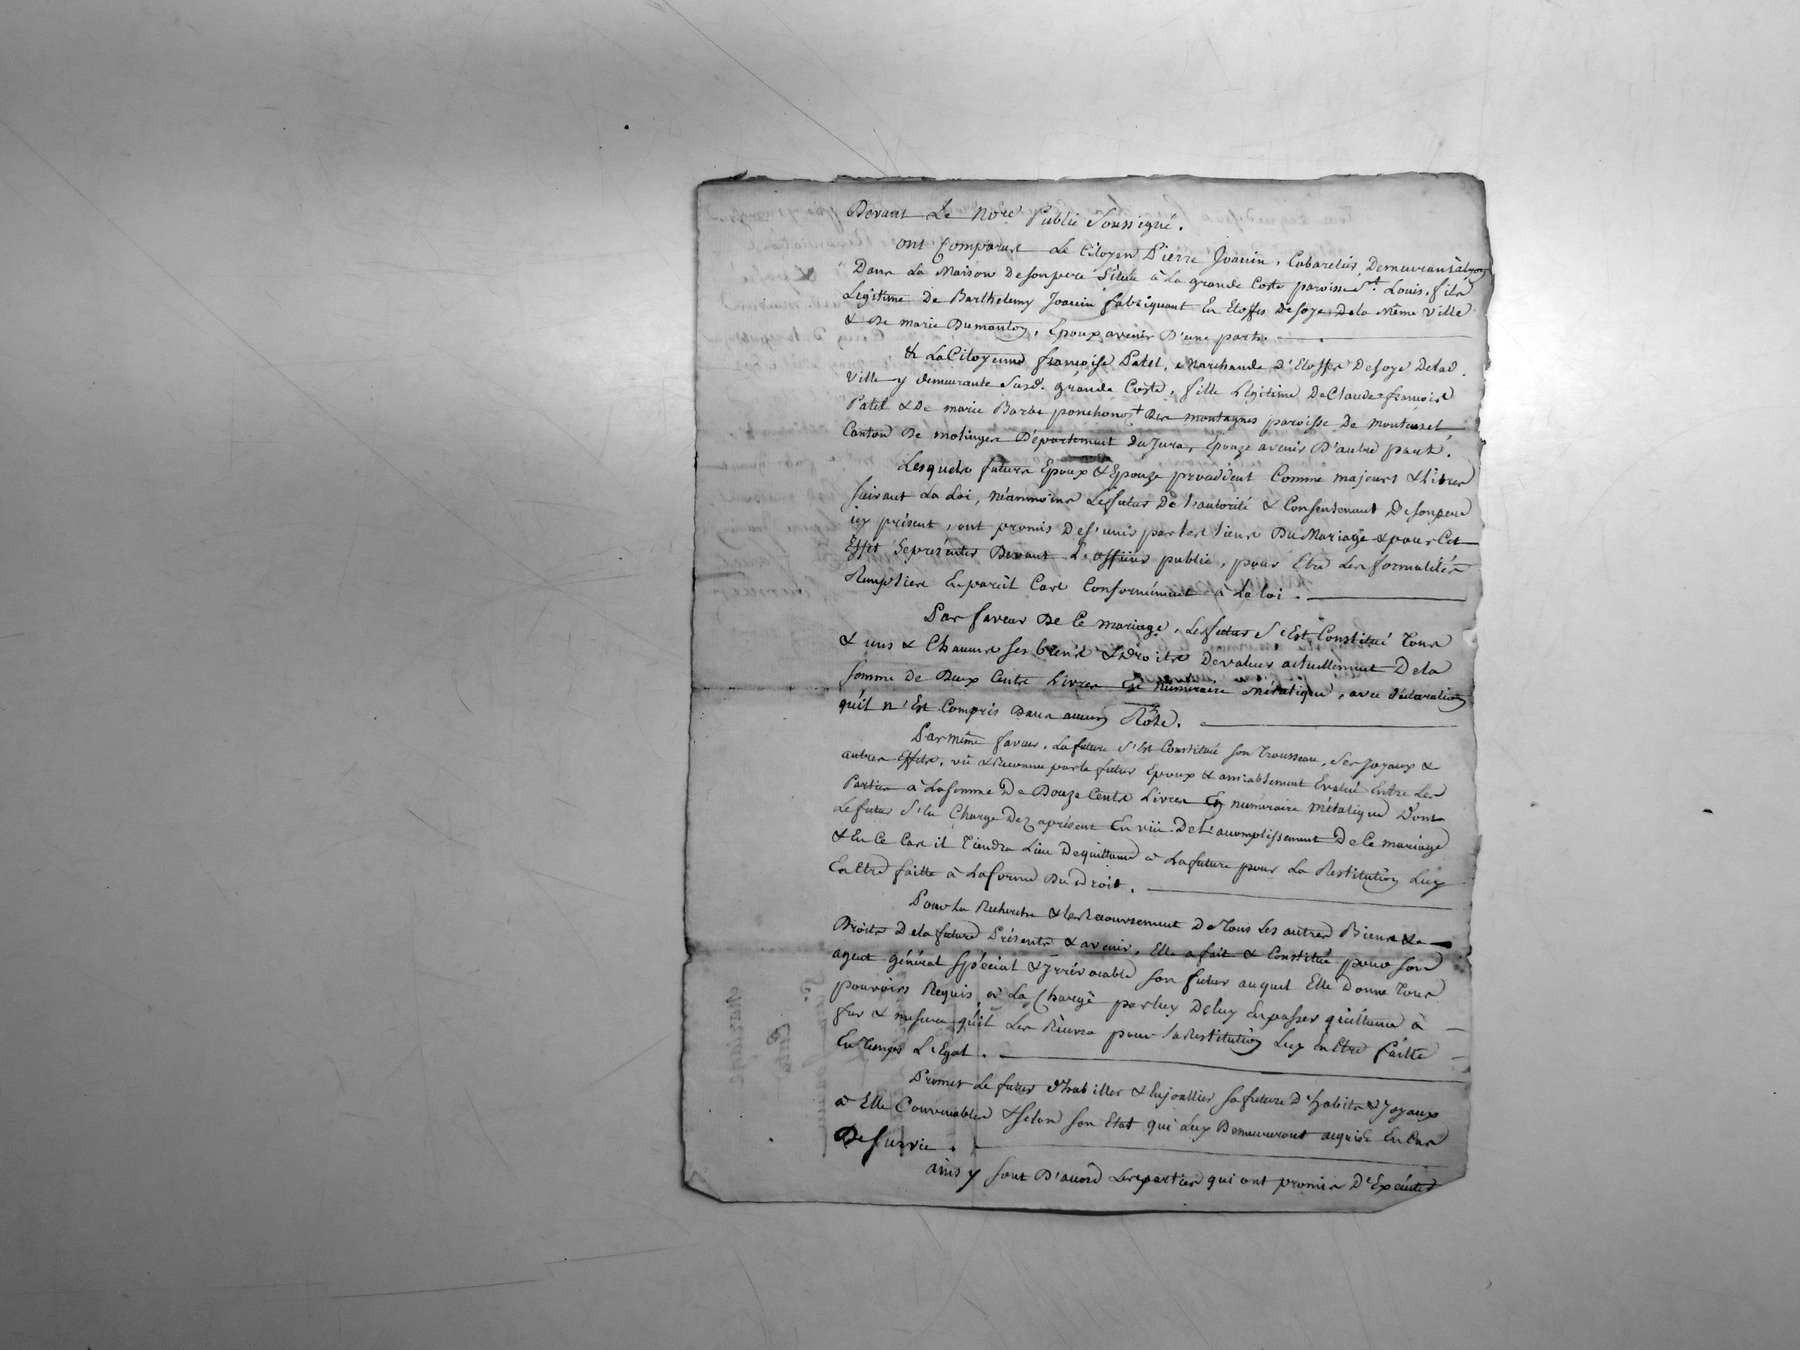 Devant Le No.re Public Soussigné.
ont Comparu Le Citoyen Pierre Jouvin, Cabaretier Demeurant à Lyon
Dans La Maison de son pere Située à La grande Coste paroisse St. Louis, fils
Legitime De Barthelemy Jouvin fabriquant En Etoffes De soye De la Même Ville
& De marie Dumonton, Epoux avenir D'une part.
& La Citoyenne françoise Patel, Marchande D'Etoffes De soye De lad.
Ville y demeurante susd. grande Coste, fille Legitime De Claude françois
Patel & De marie Barbe ponchonot Des montagnes paroisse De
Canton De Departement du Jura, Epouze avenir D'autre part.
Lesquels futurs Epoux & Epouze procedent Comme majeurs & libres
suivant La Loi, néanmoins Le futur De L'autorité & Consentement De son pere
icy présent, ont promis De s'unir par les liens Du Mariage & pour Cet
Effet Se présenter Devant L'officier public, pour Etre Les formalités
Remplies En pareil Cas Conformément à La loi.
Par faveur De Ce mariage, Le futur S'Est Constitué Tous
& uns & Chacuns ses biens & droits De valeur actuellement De la
somme de Deux Cents Livres En numeraire métalique, avec déclaration
qu'il n'Est Compris Dans aucun Rôle.
Par même faveur, La future S'Est Constitué son Trousseau, Ses joyaux &
autres Effets, vû & Reconnu par le futur Epoux & amiablement Evalué Entre Les
Parties à La somme De Douze Cents Livres En numeraire métalique Dont
Le futur S'En Charge Dez aprésent En vüe De L'acomplissement De Ce mariage
& En Ce Cas il Tiendra Lieu De quittance à La future pour La Restitution Luy
En Etre faitte à La forme Du droit.
Pour La Recherche & le Recouvrement De Tous Les autres Biens &
Droits De la future Présents & avenir, Elle a fait & Constitué pour son
agent général spécial & Irrévocable son futur auquel Elle Donne Tous
pouvoirs Requis, à La Charge par luy De luy En passer quittance à
fur & mesure qu'il Les Recevra pour La Restitution Luy En Etre faitte
En Temps L'Egal.
Promet Le futur d'habiller & Enjoailler sa future D'habits & Joyaux
à Elle Convenables & selon son Etat qui Luy Demeureront acquis En Cas
De survie.
ainsy sont D'accord Les parties qui ont promis D'Exécuter